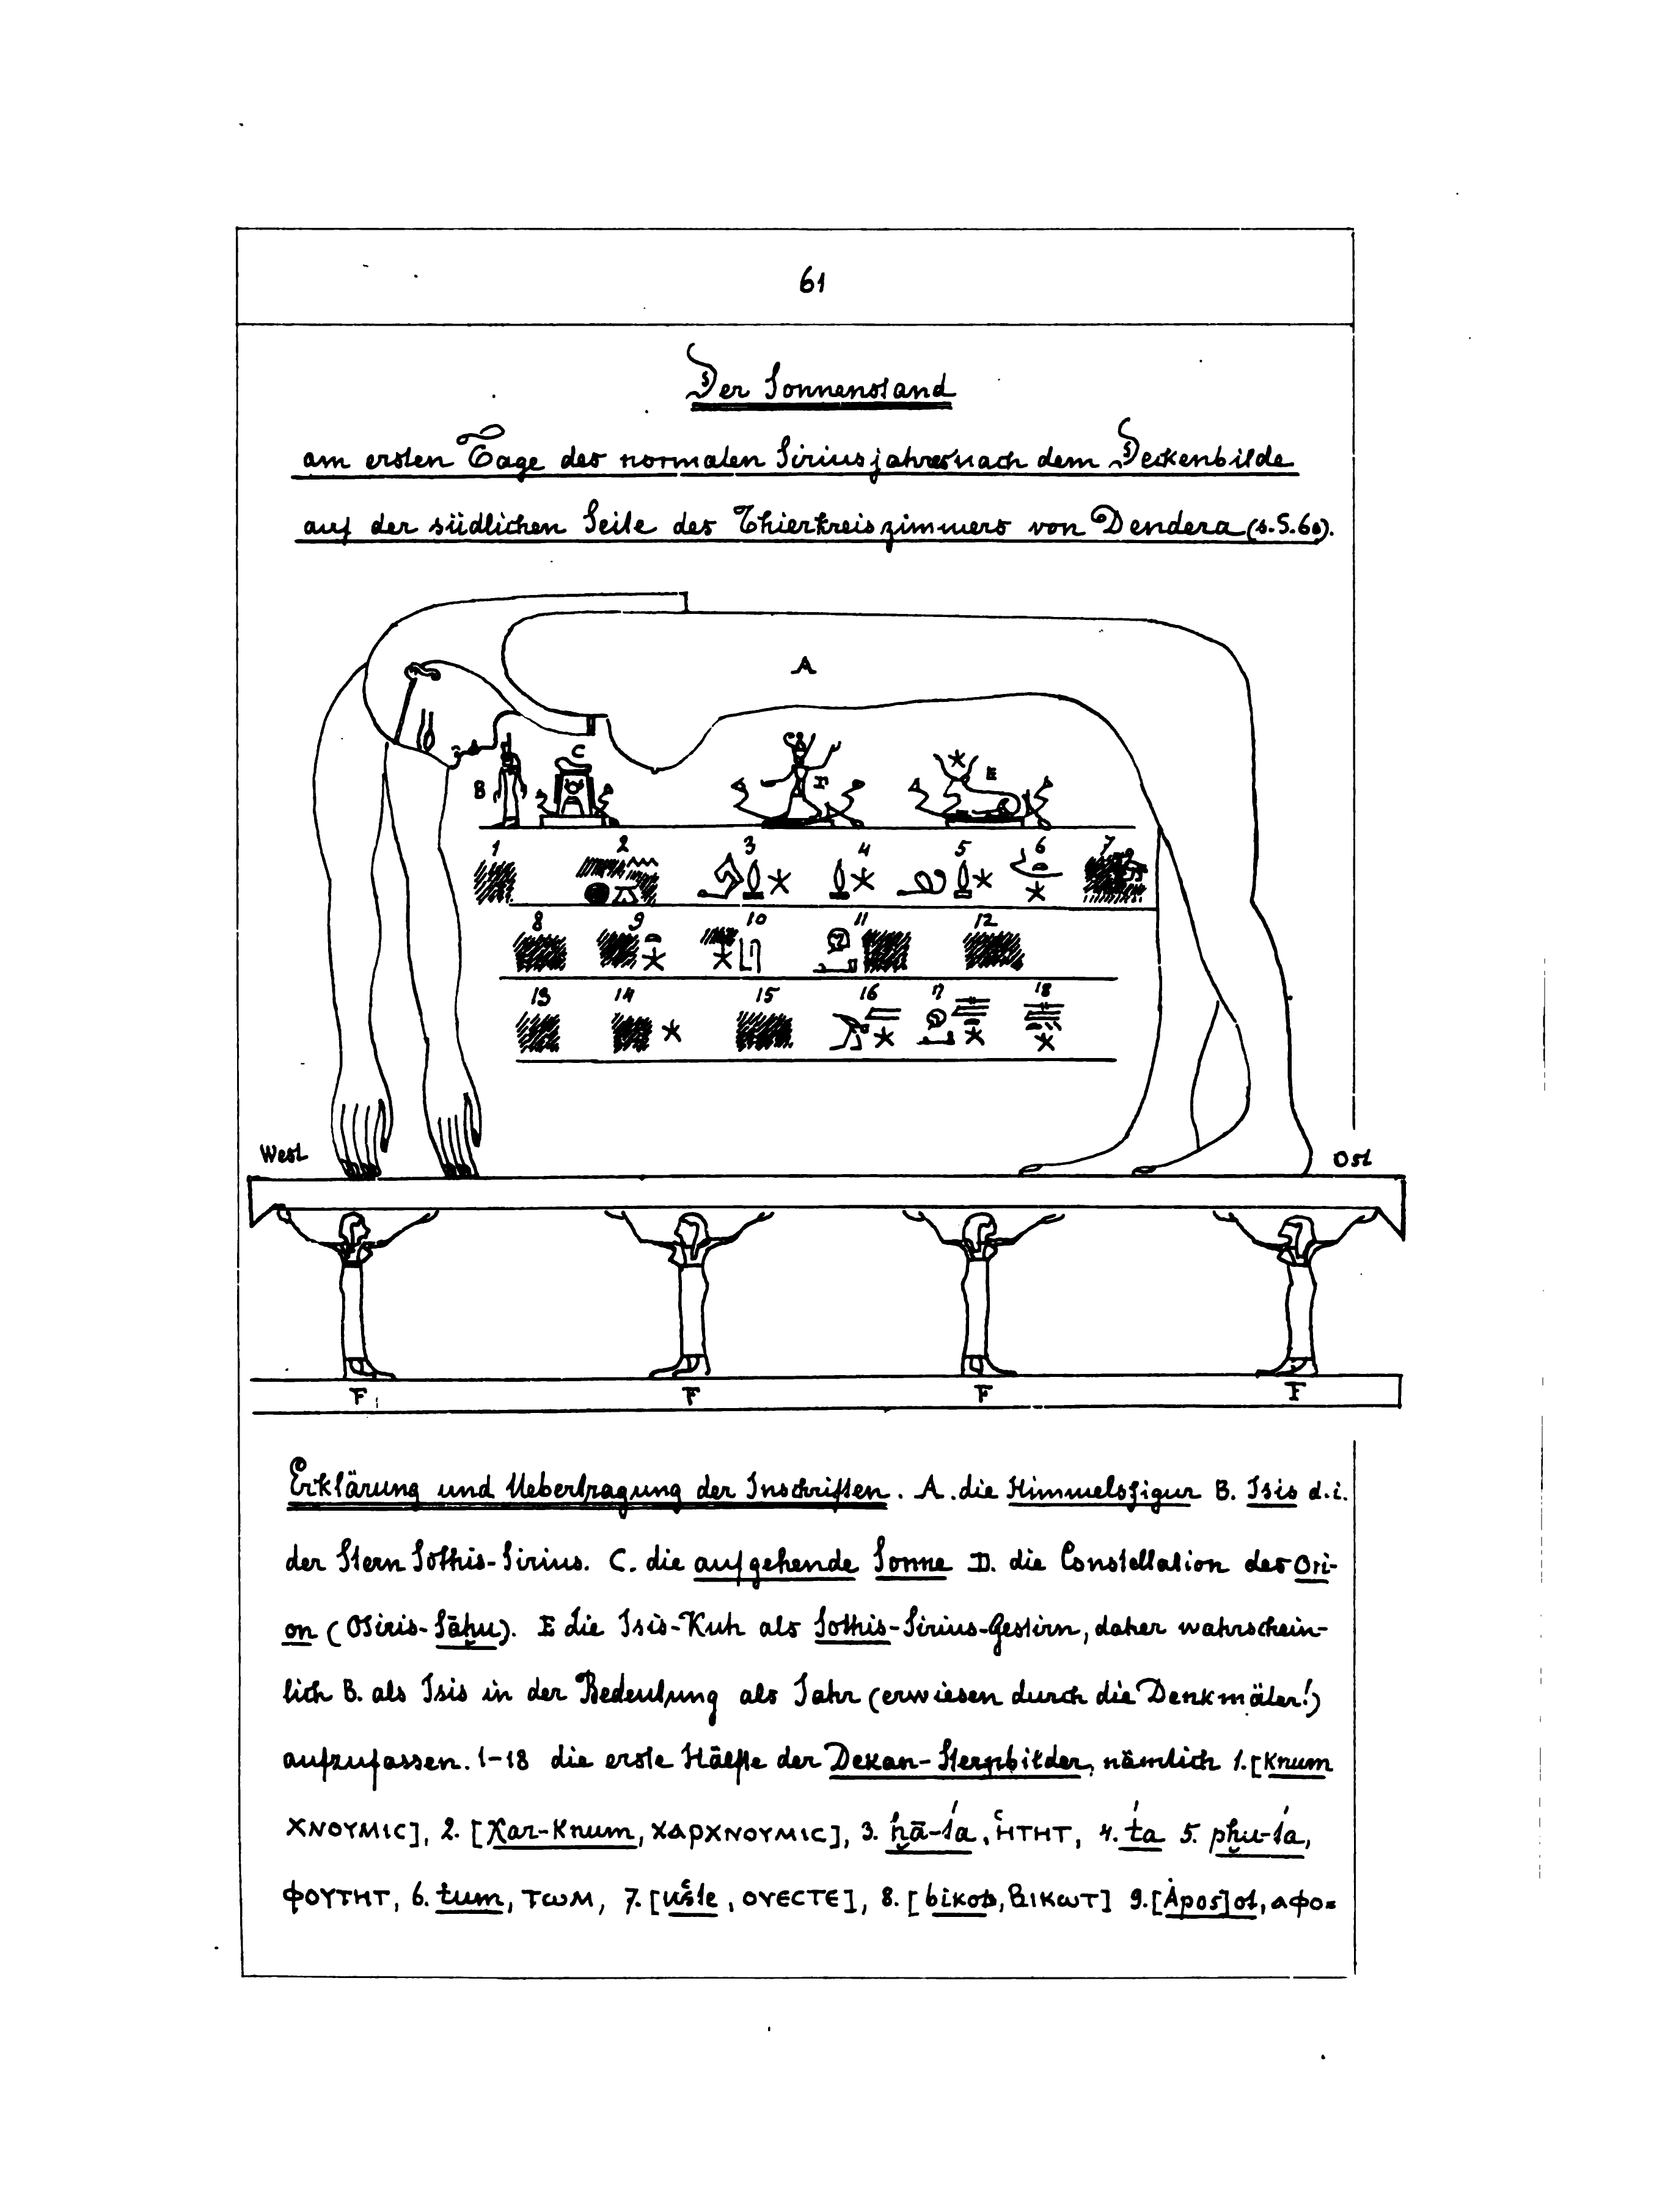 61
Der Sonnenstand
am ersten Tage des normalen Siriusjahres nach dem Deckenbilde
auf der südlichen Seite des Thierkreiszimmers von Dendera (s. S. 60).
A
B
C
D
E
1 2 3 4 5 6 7
8 9 10 11 12
13 14 15 16 17 18
West
Ost
F F F F
Erklärung und Uebertragung der Inschriften. A. die Himmelsfigur B. Isis d. i.
der Stern Sothis-Sirius. C. die aufgehende Sonne D. die Constellation des Ori-
on (Osiris-Sāḥu). E die Isis-Kuh als Sothis-Sirius-Gestirn, daher wahrschein-
lich B. als Isis in der Bedeutung als Jahr (erwiesen durch die Denkmäler!)
aufzufassen. 1-18 die erste Hälfte der Dekan-Sternbilder, nämlich 1. [Knum
ΧΝΟΥΜΙC], 2. [Χar-Knum, ΧΑΡΧΝΟΥΜΙC], 3. ḥā-ťa, ἩΤΗΤ, 4. ťa 5. pḥu-ťa,
ΦΟΥΤΗΤ, 6. tum, ΤωΜ, 7. [uště, ΟΥΕCΤΕ], 8. [bikot, ΒΙΚωΤ] 9. [Ȧpos]ot, ΑΦΟ=